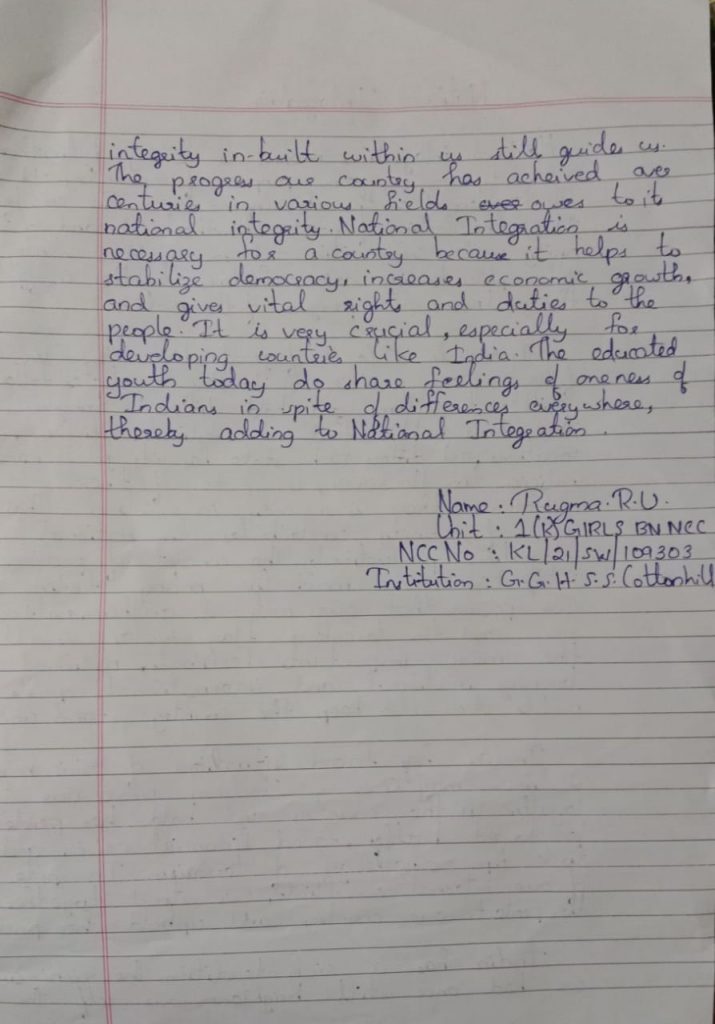 integrity in-built within us still guides us.
The progress our country has acheived over
centuries in various fields owes to it
national integrity. National Integration is
necessary for a country because it helps to
stabilize democracy, increases economic growth,
and gives vital rights and duties to the
people. It is very crucial, especially for
developing countries like India. The educated
youth today do share feelings of oneness of
Indians in spite of differences everywhere,
thereby adding to National Integration.
Name : Rugma. R. U.
Unit : 1(K) GIRLS BN NCC
NCC No : KL/21/SW/109303
Institution : G. G. H. S. S. Cottonhill